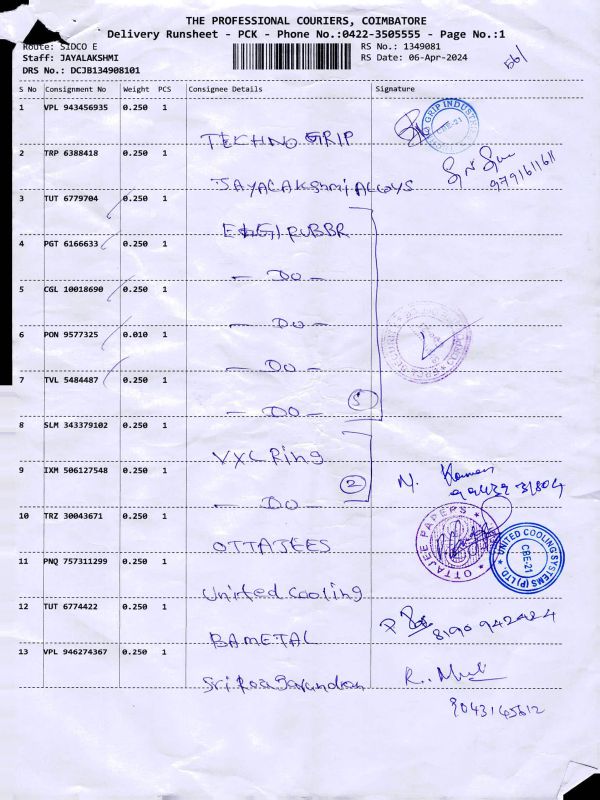 THE PROFESSIONAL COURIERS, COIMBATORE
Delivery Runsheet - PCK - Phone No.:0422-3505555 - Page No.:1
Route: SIDCO E
Staff: JAYALAKSHMI
DRS No.: DCJB134908101
RS No.: 1349081
RS Date: 06-Apr-2024
S No Consignment No Weight PCS Consignee Details Signature
1 VPL 943456935 0.250 1
TECHNO GRIP
GRIP INDUSTRIES
CBE-21
2 TRP 6388418 0.250 1
JAYALAKShmi ALLOYS
9791611611
3 TUT 6779704 0.250 1
ELGI RUBBR
4 PGT 6166633 0.250 1
- DO -
5 CGL 10018690 0.250 1
- DO -
6 PON 9577325 0.010 1
- DO -
7 TVL 5484487 0.250 1
- DO -
5
8 SLM 343379102 0.250 1
VXL Ring
9 IXM 506127548 0.250 1
- DO -
2
10 TRZ 30043671 0.250 1
OTTAJEES
OTTAJEE PAPERS
11 PNQ 757311299 0.250 1
United Cooling
UNITED COOLING SYSTEMS (P) LTD.
CBE-21
12 TUT 6774422 0.250 1
BAMETAL
8190942424
13 VPL 946274367 0.250 1
9043145612